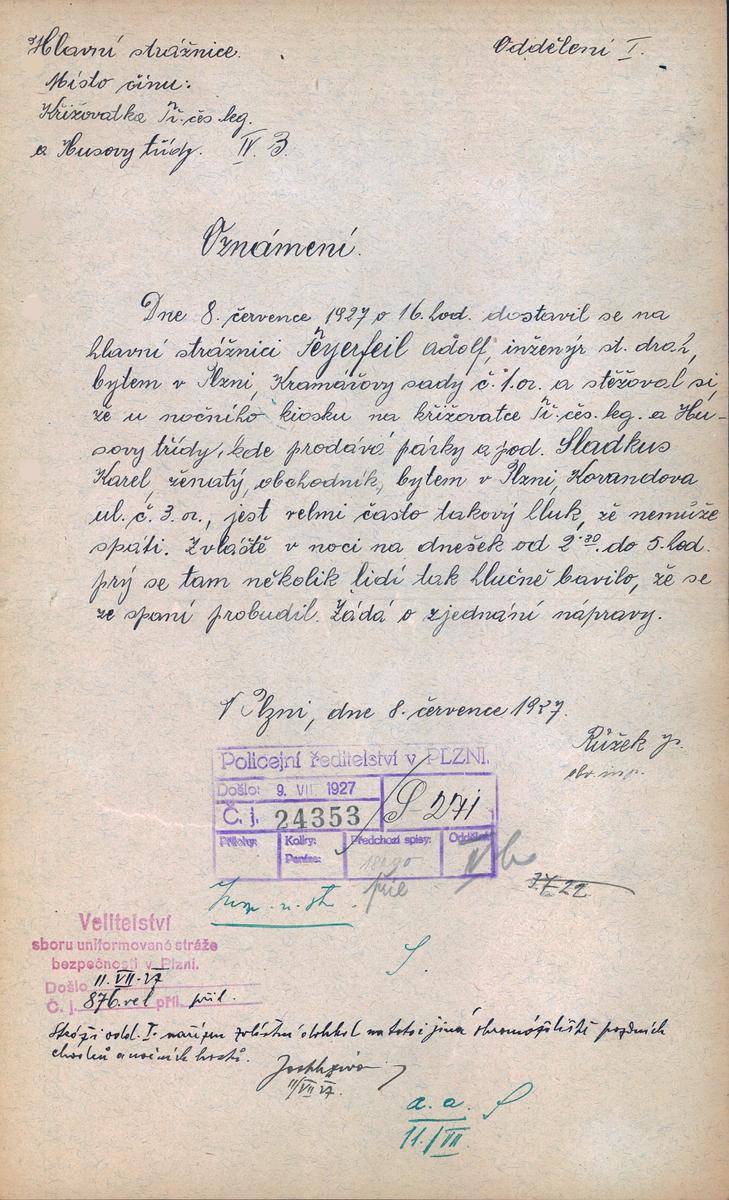 Hlavní strážnice. Oddělení I.
Místo činu:
Křižovatka Tř. čes. leg.
a Husovy třídy. IV. 3.
Oznámení.
Dne 8. července 1927 o 16. hod. dostavil se na
hlavní strážnici Feyerfeil Adolf, inženýr st. drah,
bytem v Plzni, Kramářovy sady č. 1. or. a stěžoval si,
že u nočního kiosku na křižovatce Tř. čes. leg. a Hu-
sovy třídy, kde prodává párky a pod. Sladkus
Karel, ženatý, obchodník, bytem v Plzni, Korandova
ul. č. 3. or., jest velmi často takový hluk, že nemůže
spáti. Zvláště v noci na dnešek od 2·30. do 5. hod.
prý se tam několik lidí tak hlučně bavilo, že se
ze spaní probudil. Žádá o zjednání nápravy.
V Plzni, dne 8. července 1927.
Růžek
obv. insp.
Policejní ředitelství v PLZNI.
Došlo: 9. VII 1927
Č. j. 24353 S 271
Přílohy: Kolky: Peníze: Předchozí spisy: Odděl.
Velitelství
sboru uniformované stráže
bezpečnosti v Plzni.
Došlo 11. VII. 27
Č. j. 876. vel příl. příl.
odd. I. nařízen zvláštní dohled na toto i jiná shromáždiště pozdních
chodců a nočních hostů.
11/VII 27
a. a. S
11./VII